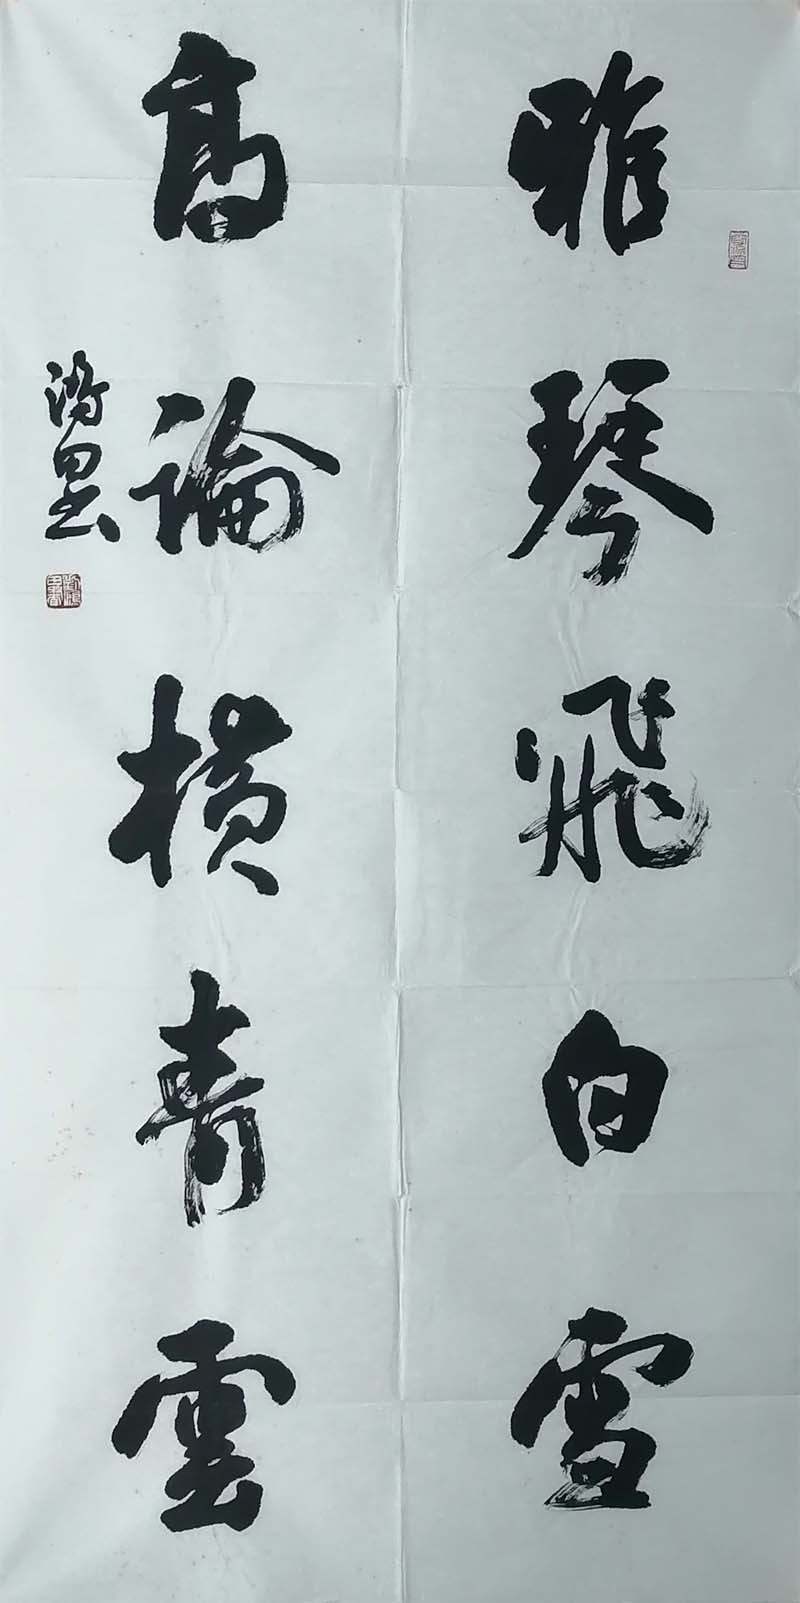 雅琴飛白雪
高論橫青雲